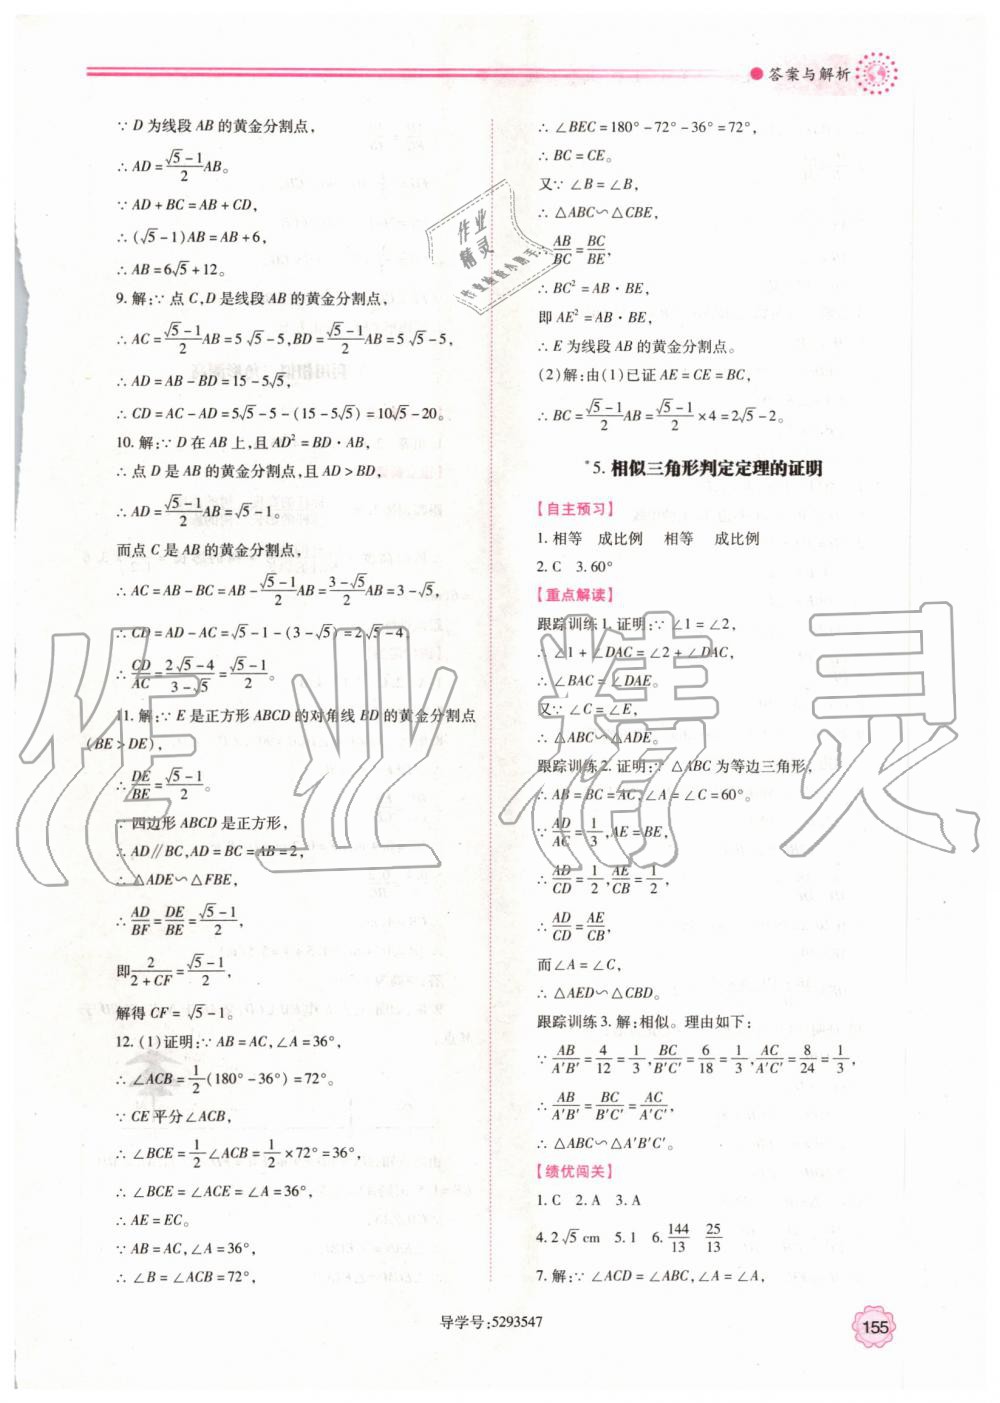 答案与解析
∵ D 为线段 AB 的黄金分割点，
∴ AD = (√5 - 1)/2 AB。
∵ AD + BC = AB + CD，
∴ (√5 - 1)AB = AB + 6，
∴ AB = 6√5 + 12。
9. 解：∵ 点 C，D 是线段 AB 的黄金分割点，
∴ AC = (√5 - 1)/2 AB = 5√5 - 5，BD = (√5 - 1)/2 AB = 5√5 - 5，
∴ AD = AB - BD = 15 - 5√5，
∴ CD = AC - AD = 5√5 - 5 - (15 - 5√5) = 10√5 - 20。
10. 解：∵ D 在 AB 上，且 AD² = BD · AB，
∴ 点 D 是 AB 的黄金分割点，且 AD > BD，
∴ AD = (√5 - 1)/2 AB = √5 - 1。
而点 C 是 AB 的黄金分割点，
∴ AC = AB - BC = AB - (√5 - 1)/2 AB = (3 - √5)/2 AB = 3 - √5，
∴ CD = AD - AC = √5 - 1 - (3 - √5) = 2√5 - 4，
∴ CD/AC = (2√5 - 4)/(3 - √5) = (√5 - 1)/2。
11. 解：∵ E 是正方形 ABCD 的对角线 BD 的黄金分割点
(BE > DE)，
∴ DE/BE = (√5 - 1)/2。
∵ 四边形 ABCD 是正方形，
∴ AD∥BC，AD = BC = AB = 2，
∴ △ADE∽△FBE，
∴ AD/BF = DE/BE = (√5 - 1)/2，
即 2/(2 + CF) = (√5 - 1)/2，
解得 CF = √5 - 1。
12. (1)证明：∵ AB = AC，∠A = 36°，
∴ ∠ACB = 1/2 (180° - 36°) = 72°。
∵ CE 平分∠ACB，
∴ ∠BCE = 1/2 ∠ACB = 1/2 × 72° = 36°，
∴ ∠BCE = ∠ACE = ∠A = 36°，
∴ AE = EC。
∵ AB = AC，∠A = 36°，
∴ ∠B = ∠ACB = 72°，
∴ ∠BEC = 180° - 72° - 36° = 72°，
∴ BC = CE。
又∵ ∠B = ∠B，
∴ △ABC∽△CBE，
∴ AB/BC = BC/BE，
∴ BC² = AB · BE，
即 AE² = AB · BE，
∴ E 为线段 AB 的黄金分割点。
(2)解：由(1)已证 AE = CE = BC，
∴ BC = (√5 - 1)/2 AB = (√5 - 1)/2 × 4 = 2√5 - 2。
*5. 相似三角形判定定理的证明
【自主预习】
1. 相等 成比例 相等 成比例
2. C 3. 60°
【重点解读】
跟踪训练 1. 证明：∵ ∠1 = ∠2，
∴ ∠1 + ∠DAC = ∠2 + ∠DAC，
∴ ∠BAC = ∠DAE。
又∵ ∠C = ∠E，
∴ △ABC∽△ADE。
跟踪训练 2. 证明：∵ △ABC 为等边三角形，
∴ AB = BC = AC，∠A = ∠C = 60°。
∵ AD/AC = 1/3，AE = BE，
∴ AD/CD = 1/2，AE/CB = 1/2，
∴ AD/CD = AE/CB，
而∠A = ∠C，
∴ △AED∽△CBD。
跟踪训练 3. 解：相似。理由如下：
∵ AB/A'B' = 4/12 = 1/3，BC/B'C' = 6/18 = 1/3，AC/A'C' = 8/24 = 1/3，
∴ AB/A'B' = BC/B'C' = AC/A'C'，
∴ △ABC∽△A'B'C'。
【绩优闯关】
1. C 2. A 3. A
4. 2√5 cm 5. 1 6. 144/13 25/13
7. 解：∵ ∠ACD = ∠ABC，∠A = ∠A，
导学号：5293547
155
作业精灵
作业
精灵